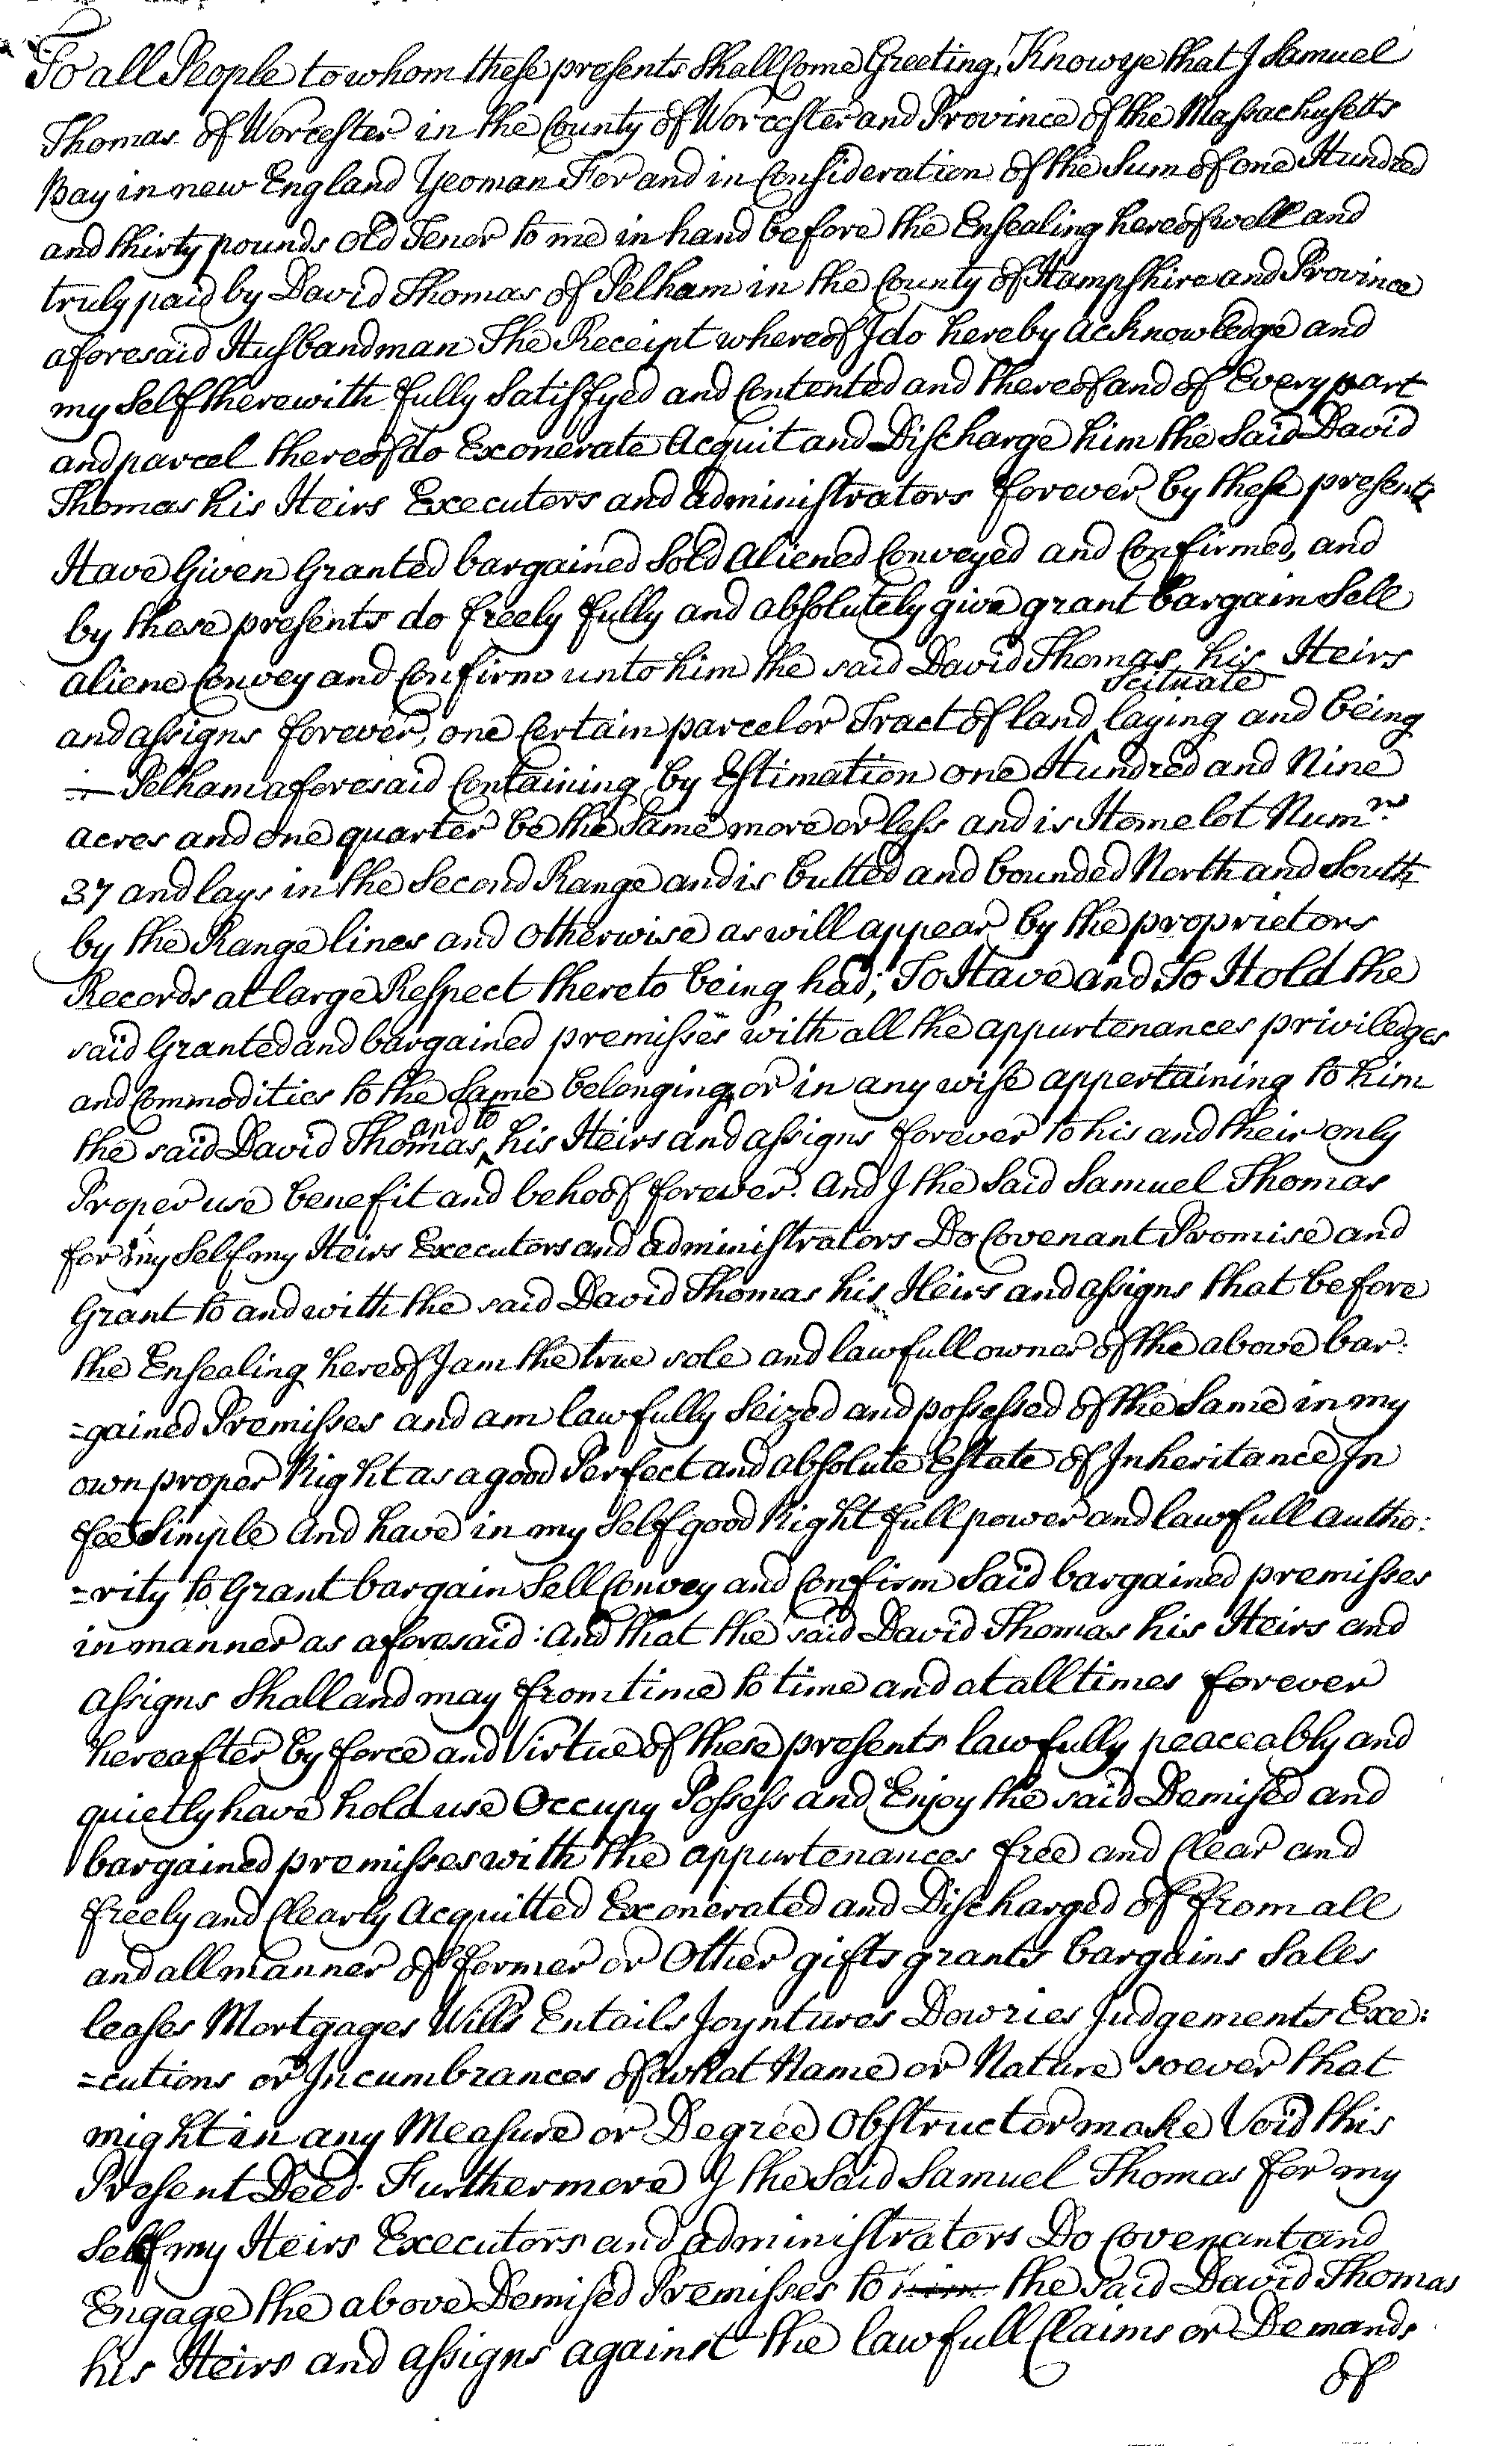 To all People to whom these presents Shall Come Greeting, Know ye that I Samuel
Thomas of Worcester in the County of Worcester and Province of the Massachusetts
Bay in new England Yeoman For and in Consideration of the Sum of one Hundred
and thirty pounds old Tenor to me in hand before the Ensealing hereof well and
truly paid by David Thomas of Pelham in the County of Hampshire and Province
aforesaid Husbandman The Receipt whereof I do hereby acknowledge and
my Self therewith fully Satisfyed and Contented and thereof and of Every part
and parcel thereof do Exonerate Acquit and Discharge him the Said David
Thomas his Heirs Executors and administrators forever by these presents
Have Given Granted bargained Sold aliened Conveyed and Confirmed, and
by these presents do freely fully and absolutely give grant bargain Sell
aliene Convey and Confirm unto him the said David Thomas his Heirs
Scituate
and assigns forever, one Certain parcel or Tract of land laying and being
in Pelham aforesaid Containing by Estimation one Hundred and Nine
acres and one quarter be the Same more or less and is Home lot Numr.
37 and lays in the Second Range and is butted and bounded North and South
by the Range lines and otherwise as will appear by the proprietors
Records at large Respect thereto being had; To Have and To Hold the
said Granted and bargained premisses with all the appurtenances priviledges
and Commodities to the Same belonging or in any wise appertaining to him
and to
the said David Thomas, his Heirs and assigns forever to his and their only
Proper use benefit and behoof forever. And I the Said Samuel Thomas
for my Self my Heirs Executors and administrators Do Covenant Promise and
Grant to and with the said David Thomas his Heirs and assigns that before
the Ensealing hereof I am the true sole and lawfull owner of the above bar:
=gained Premisses and am lawfully Seized and possessed of the Same in my
own proper Right as a good Perfect and absolute Estate of Inheritance In
fee Simple And have in my Self good Right full power and lawfull autho:
=rity to Grant bargain Sell Convey and Confirm Said bargained premisses
in manner as aforesaid: And that the said David Thomas his Heirs and
assigns Shall and may from time to time and at all times forever
hereafter by force and Virtue of these presents lawfully peaceably and
quietly have hold use Occupy Possess and Enjoy the said Demised and
bargained premisses with the appurtenances free and Clear and
freely and Clearly Acquitted Exonerated and Discharged of from all
and all manner of former or Other gifts grants bargains Sales
leases Mortgages Wills Entails Joyntures Dowries Judgements Exe:
=cutions or Incumbrances of what Name or Nature soever that
might in any Measure or Degree Obstruct or make Void this
Present Deed. Furthermore I the Said Samuel Thomas for my
Self my Heirs Executors and administrators Do Covenant and
Engage the above Demised Premisses to him the Said David Thomas
his Heirs and assigns against the lawfull Claims or Demands
of